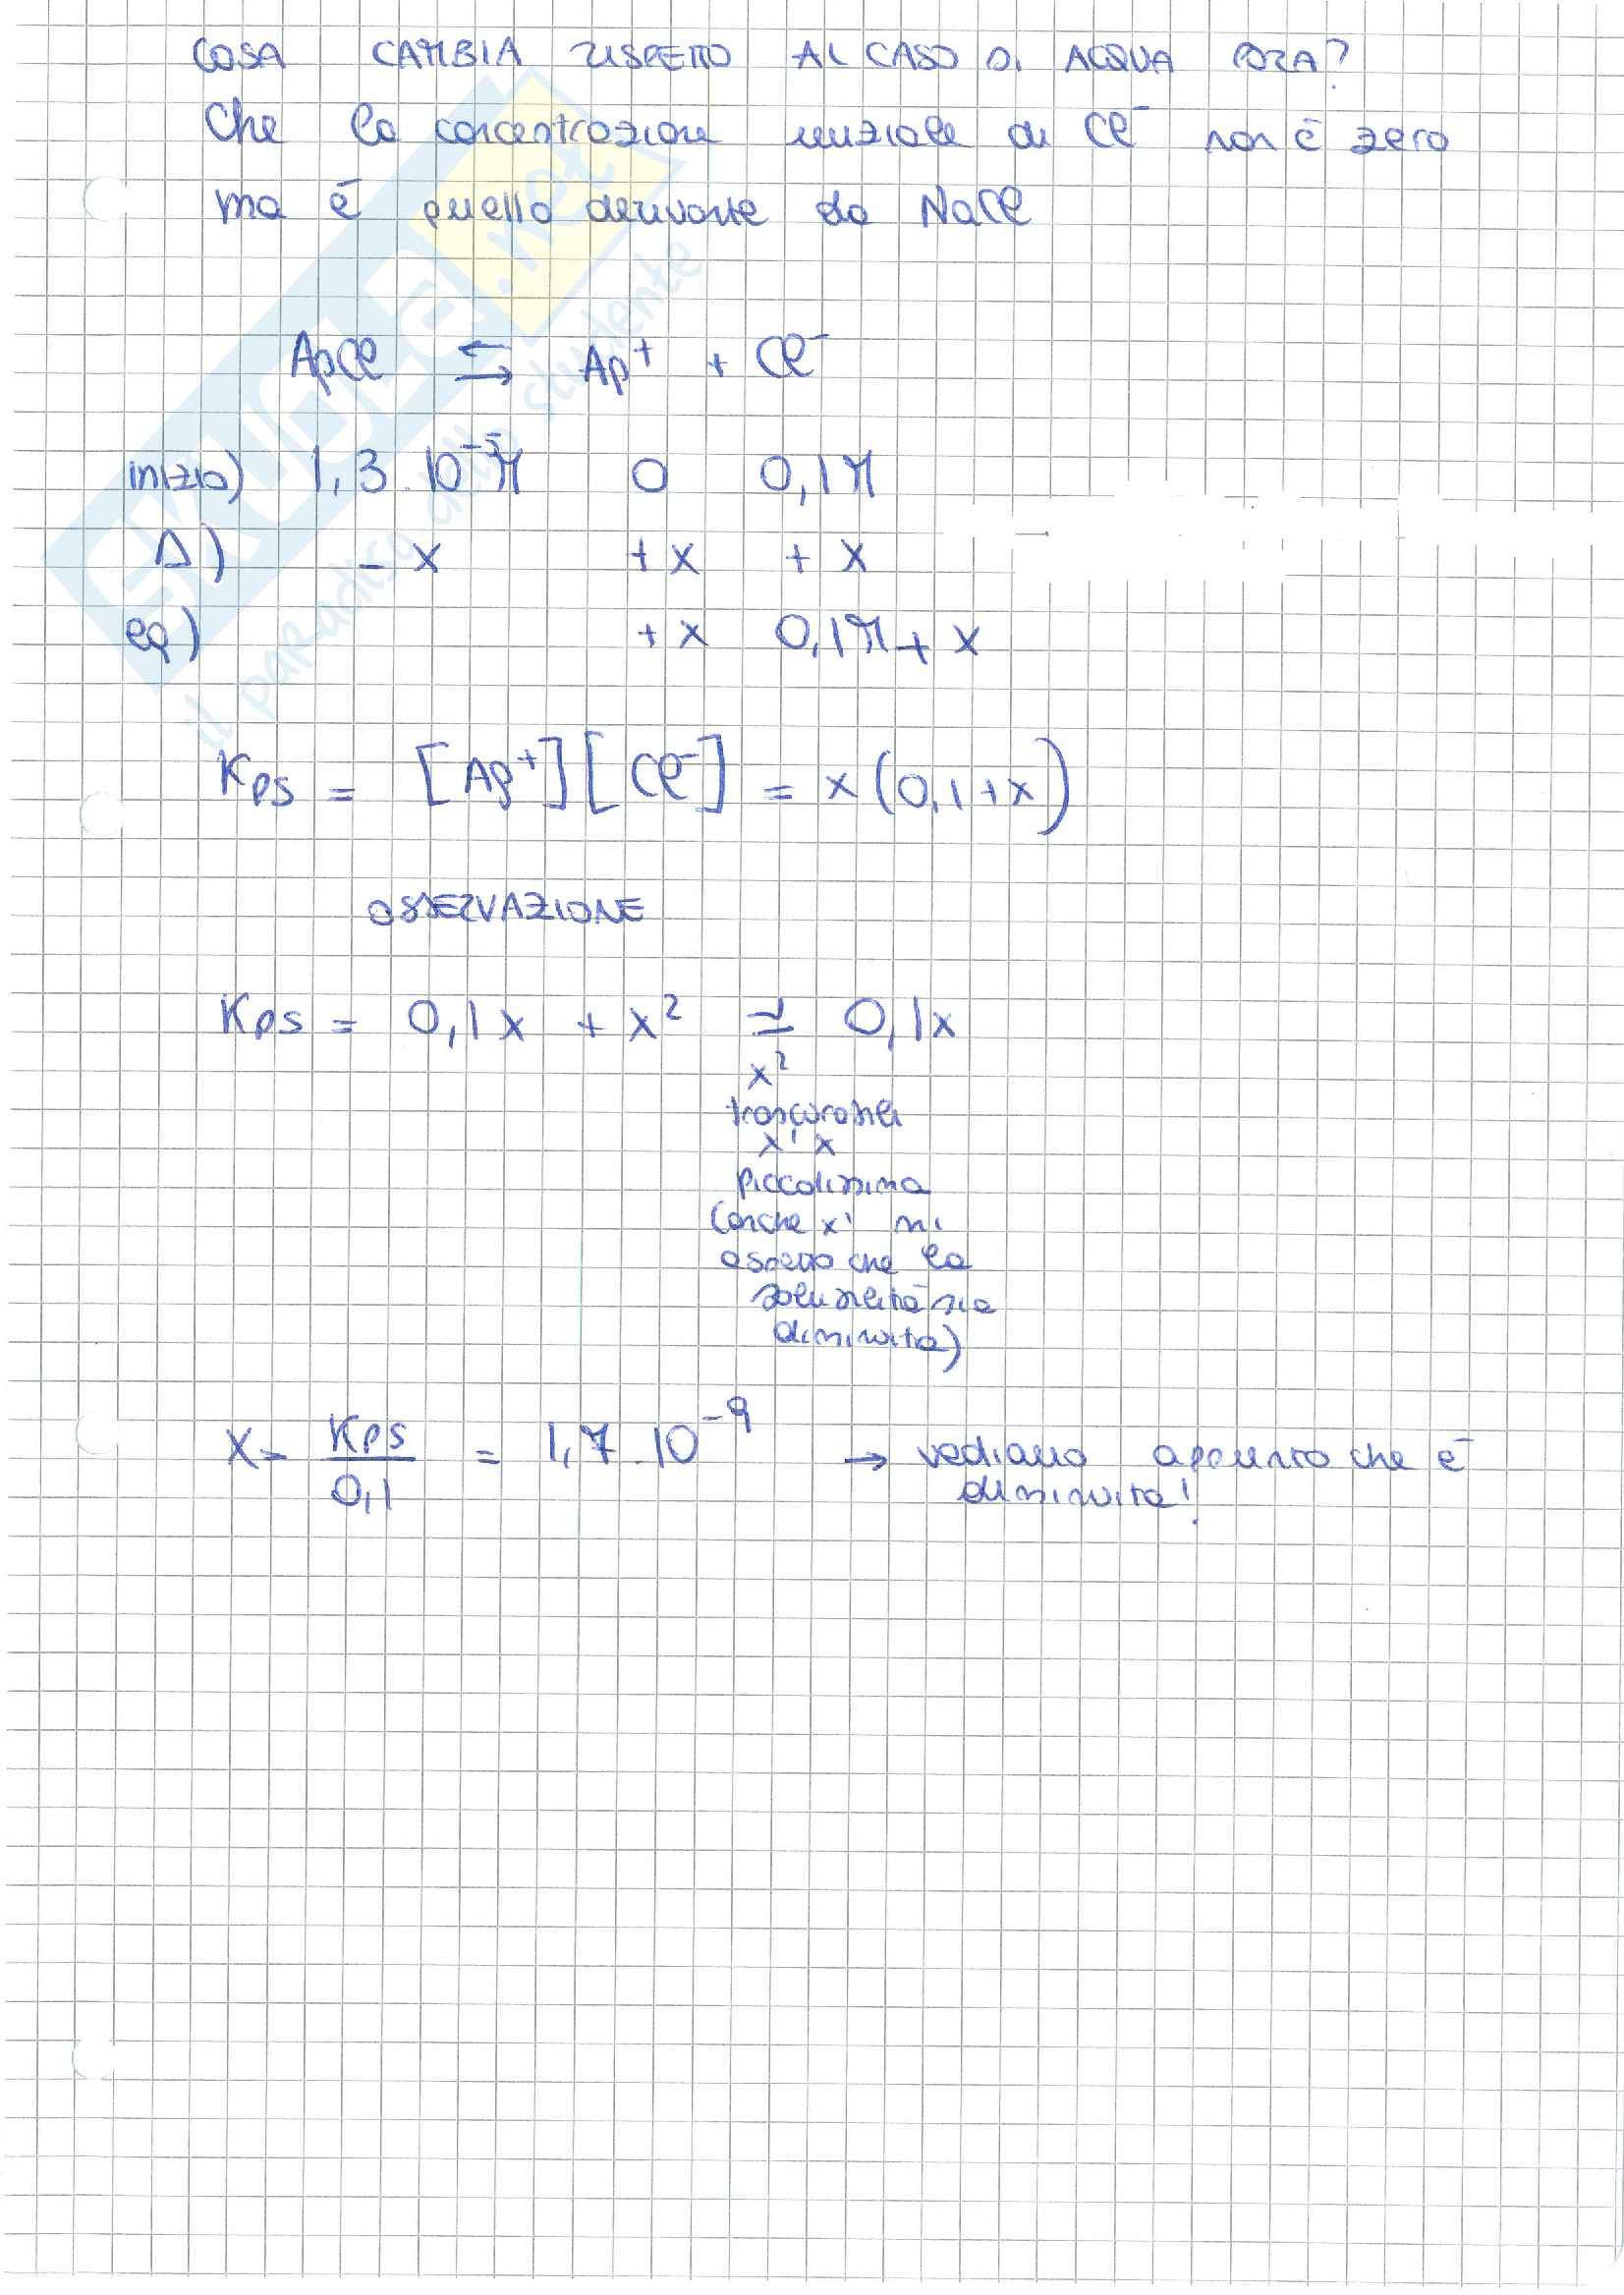 COSA CAMBIA RISPETTO AL CASO DI ACQUA PURA?
Che la concentrazione iniziale di Cl⁻ non è zero
ma è quella derivante da NaCl
AgCl ⇆ Ag⁺ + Cl⁻
inizio) 1,3 · 10⁻⁵M 0 0,1M
Δ) - x + x + x
eq) + x 0,1M + x
Kps = [Ag⁺][Cl⁻] = x(0,1+x)
OSSERVAZIONE
Kps = 0,1x + x² ≃ 0,1x
x²
trascurabile
x' x
piccolissima
(anche x' mi
aspetto che la
solubilità sia
diminuita)
x = Kps / 0,1 = 1,7 · 10⁻⁹ → vediamo appunto che è
diminuita!
SKUOLA.net
il paradiso dello studente